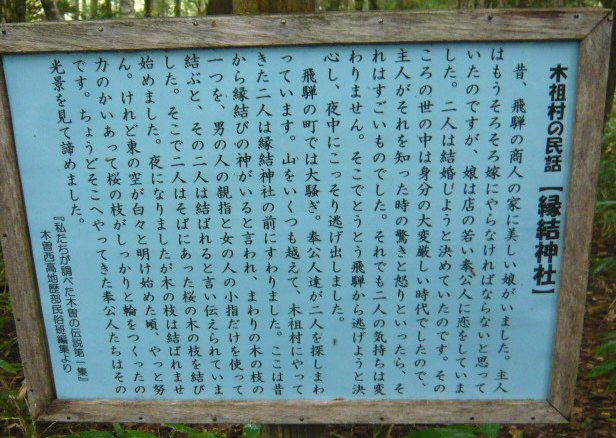 木祖村の民話【縁結神社】
昔、飛騨の商人の家に美しい娘がいました。主人
はもうそろそろ嫁にやらなければならないと思って
いたのですが、娘は店の若い奉公人に恋をしていま
した。二人は結婚しようと決めていたのです。その
ころの世の中は身分の大変厳しい時代でしたので、
主人がそれを知った時の驚きと怒りといったら、そ
れはすごいものでした。それでも二人の気持ちは変
わりません。そこでとうとう飛騨から逃げようと決
心し、夜中にこっそり逃げ出しました。
飛騨の町では大騒ぎ。奉公人達が二人を探しまわ
っています。山をいくつも越えて、木祖村にやって
きた二人は縁結神社の前にすわりました。ここは昔
から縁結びの神がいると言われ、まわりの木の枝の
一つを、男の人の親指と女の人の小指だけを使って
結ぶと、その二人は結ばれると言い伝えられていま
した。そこで二人はそばにあった桜の木の枝を結び
始めました。夜になりましたが木の枝は結ばれませ
ん。けれど東の空が白々と明け始めた頃、やっと努
力のかいあって桜の枝がしっかりと輪をつくったの
です。ちょうどそこへやってきた奉公人たちはその
光景を見て諦めました。
『私たちが調べた木曽の伝説第一集』
木曽西高地歴部民俗班編集より